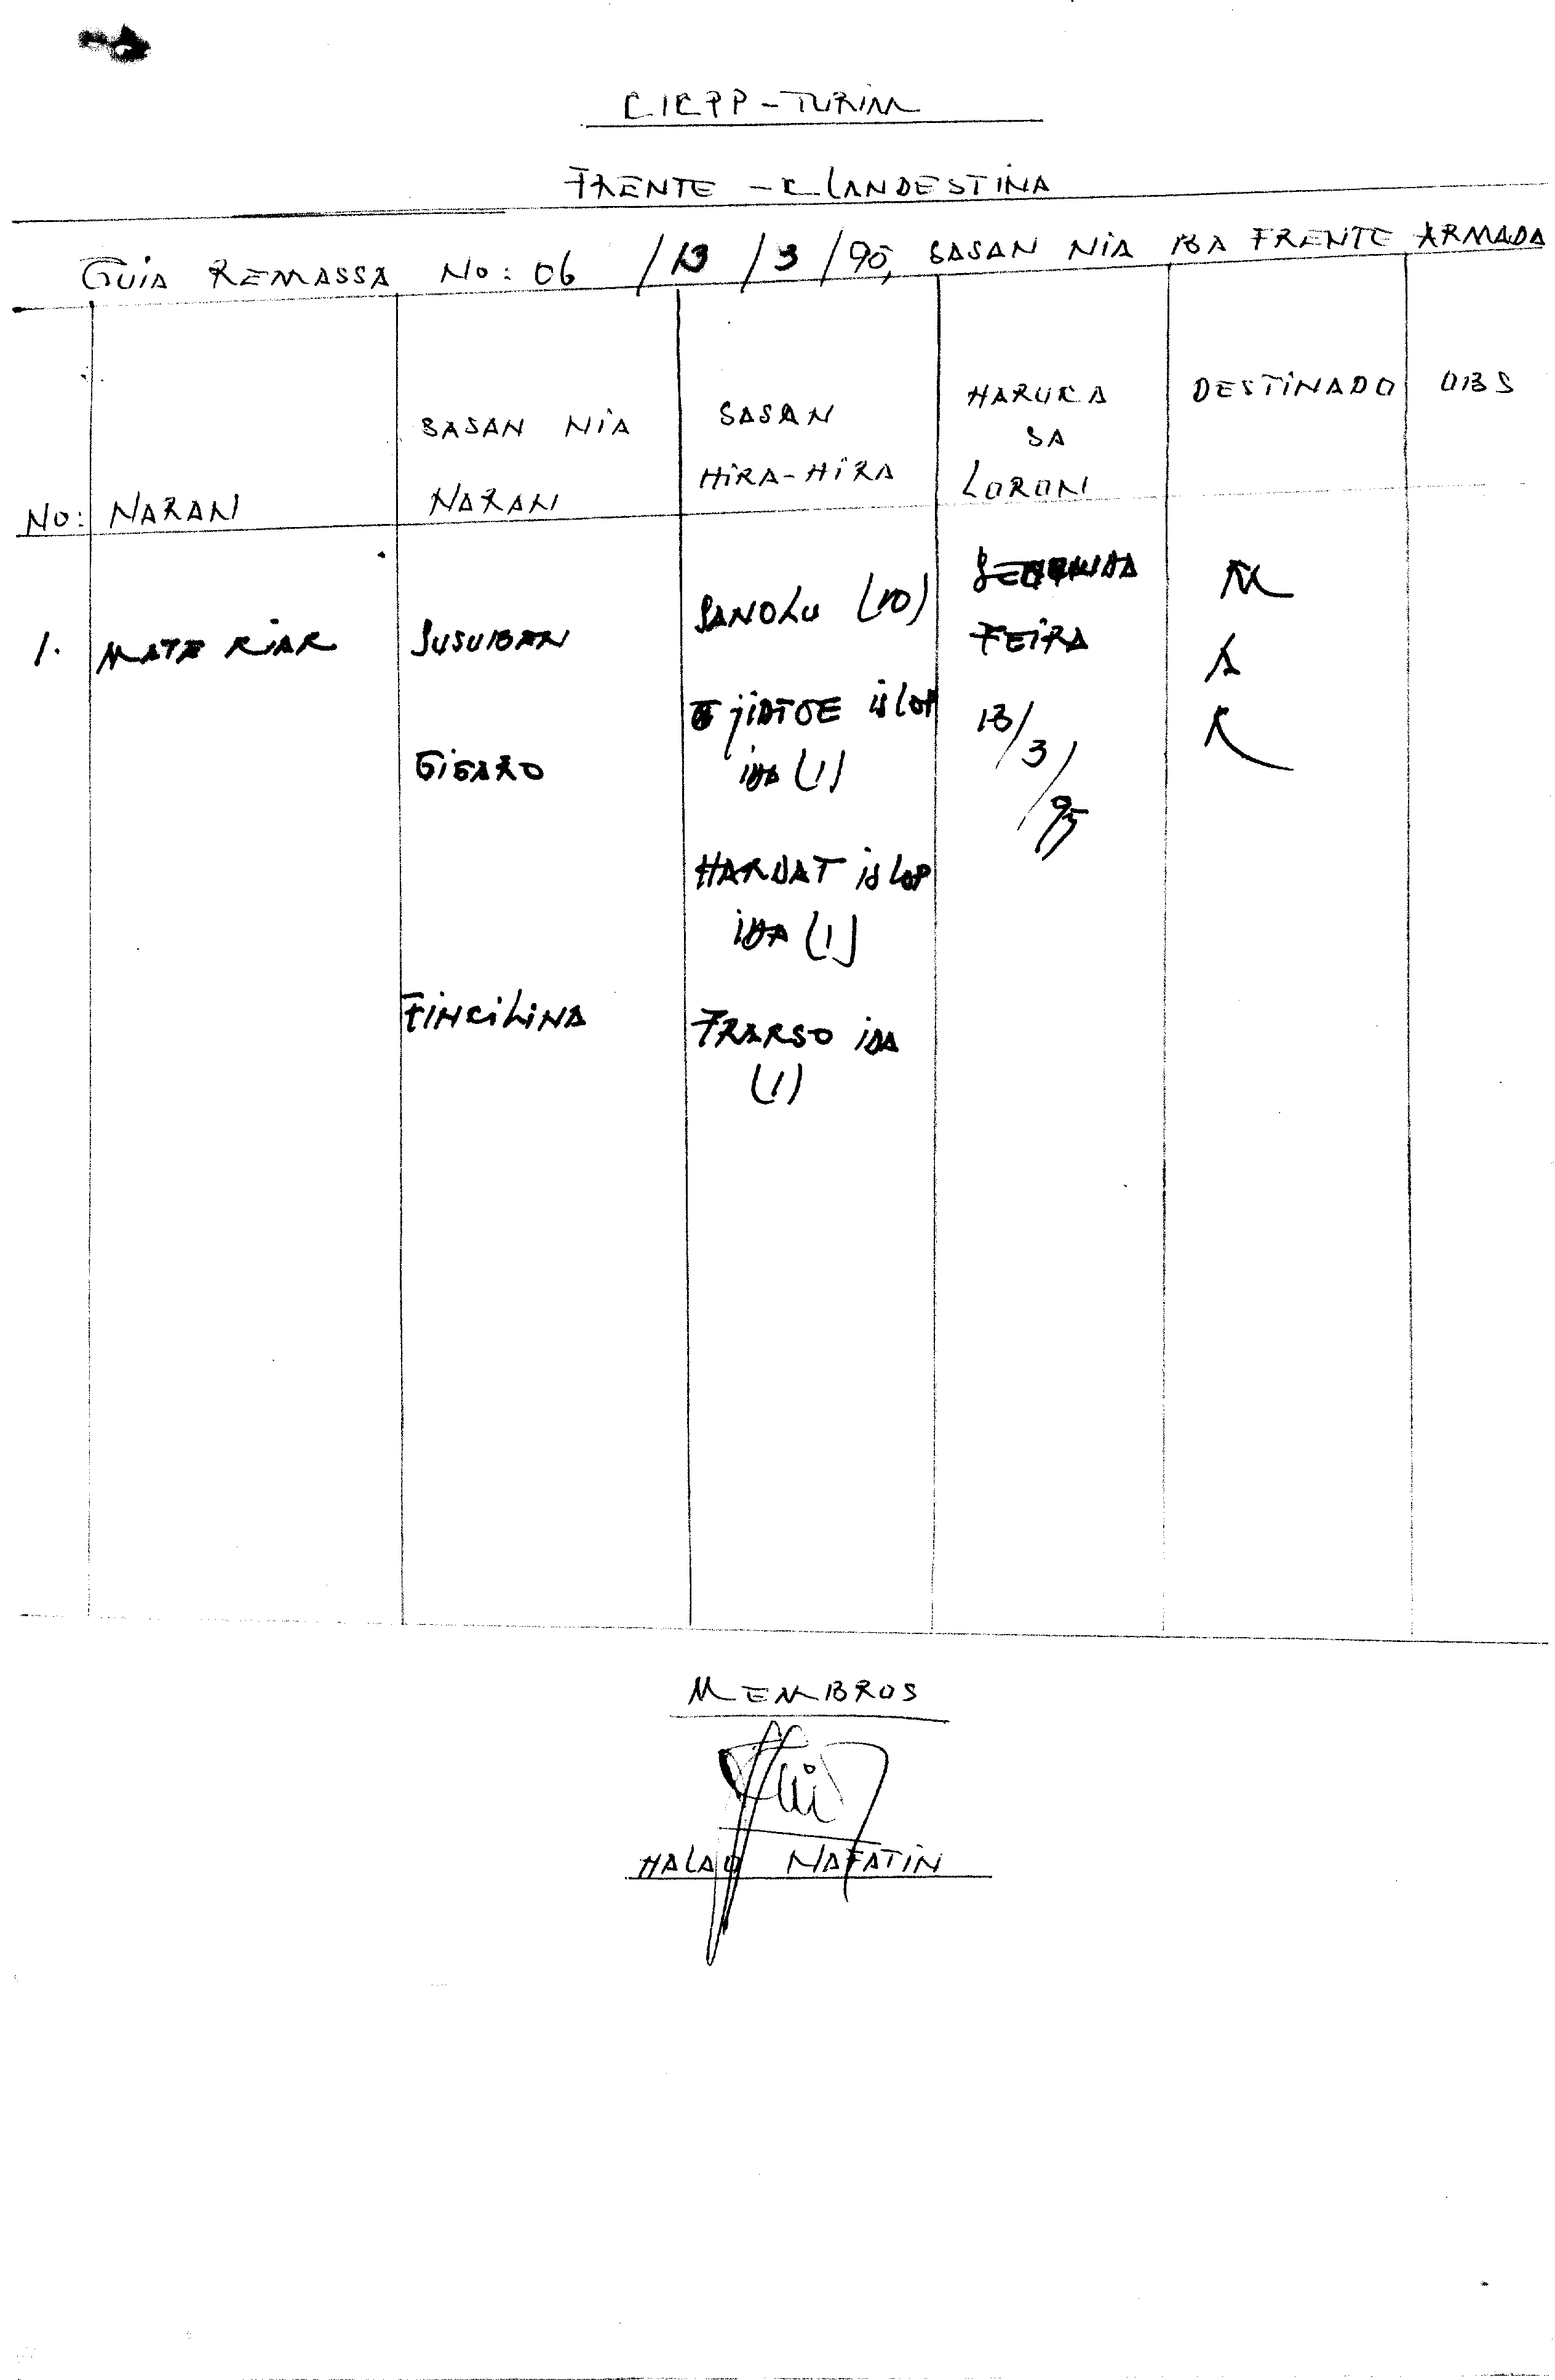 CICPP - TURIM
FRENTE - CLANDESTINA
GUIA REMASSA No: 06 / 13 / 3 / 95, SASAN NIA BA FRENTE ARMADA
No: NARAN
SASAN NIA
NARAN
SASAN
HIRA-HIRA
HARUKA
SA
LORON
DESTINADO
OBS
1. MATERIAR
SUSUBEN
SANOLU (10)
SEGUNDA
FEIRA
13/3/95
M
A
K
SIGARO
JIATOE islop
ida (1)
HARUAT islop
ida (1)
FINCILINA
FRARSO ida
(1)
MEMBROS
HALAO NAFATIN